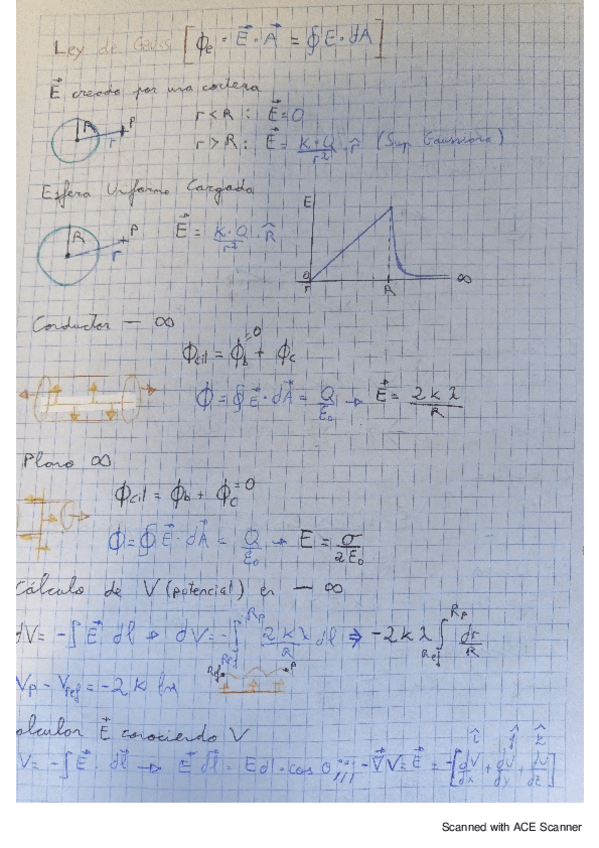 Ley de Gauss [Φe = E⃗ · A⃗ = ∮E · dA]
E⃗ creado por una corteza
R P r
r < R : E⃗ = 0
r > R : E⃗ = K·Q/r² · r̂ (Sup Gaussiana)
Esfera Uniforme Cargada
R P r
E⃗ = K·Q/r² · R̂
E
0 r R ∞
Conductor — ∞
Φcil = Φb⁼⁰ + Φc
Φ = ∮E⃗ · dA⃗ = Q/ε₀ → E⃗ = 2kλ/R
Plano ∞
Φcil = Φb + Φc⁼⁰
Φ = ∮E⃗ · dA⃗ = Q/ε₀ → E = σ/2ε₀
Cálculo de V (potencial) en — ∞
dV = -∫E⃗ dl → dV = -∫ 2kλ/R dl ⇒ -2kλ ∫ dr/R
Rp Ref Rp Ref
Ref P
Vp - Vref = -2k ln
alcular E⃗ conociendo V
V = -∫E⃗ · dl⃗ → E⃗ dl⃗ = E dl · cos 0 ;;; -∇⃗V = E⃗ = -[dV/dx + dV/dy + dV/dz]
Scanned with ACE Scanner